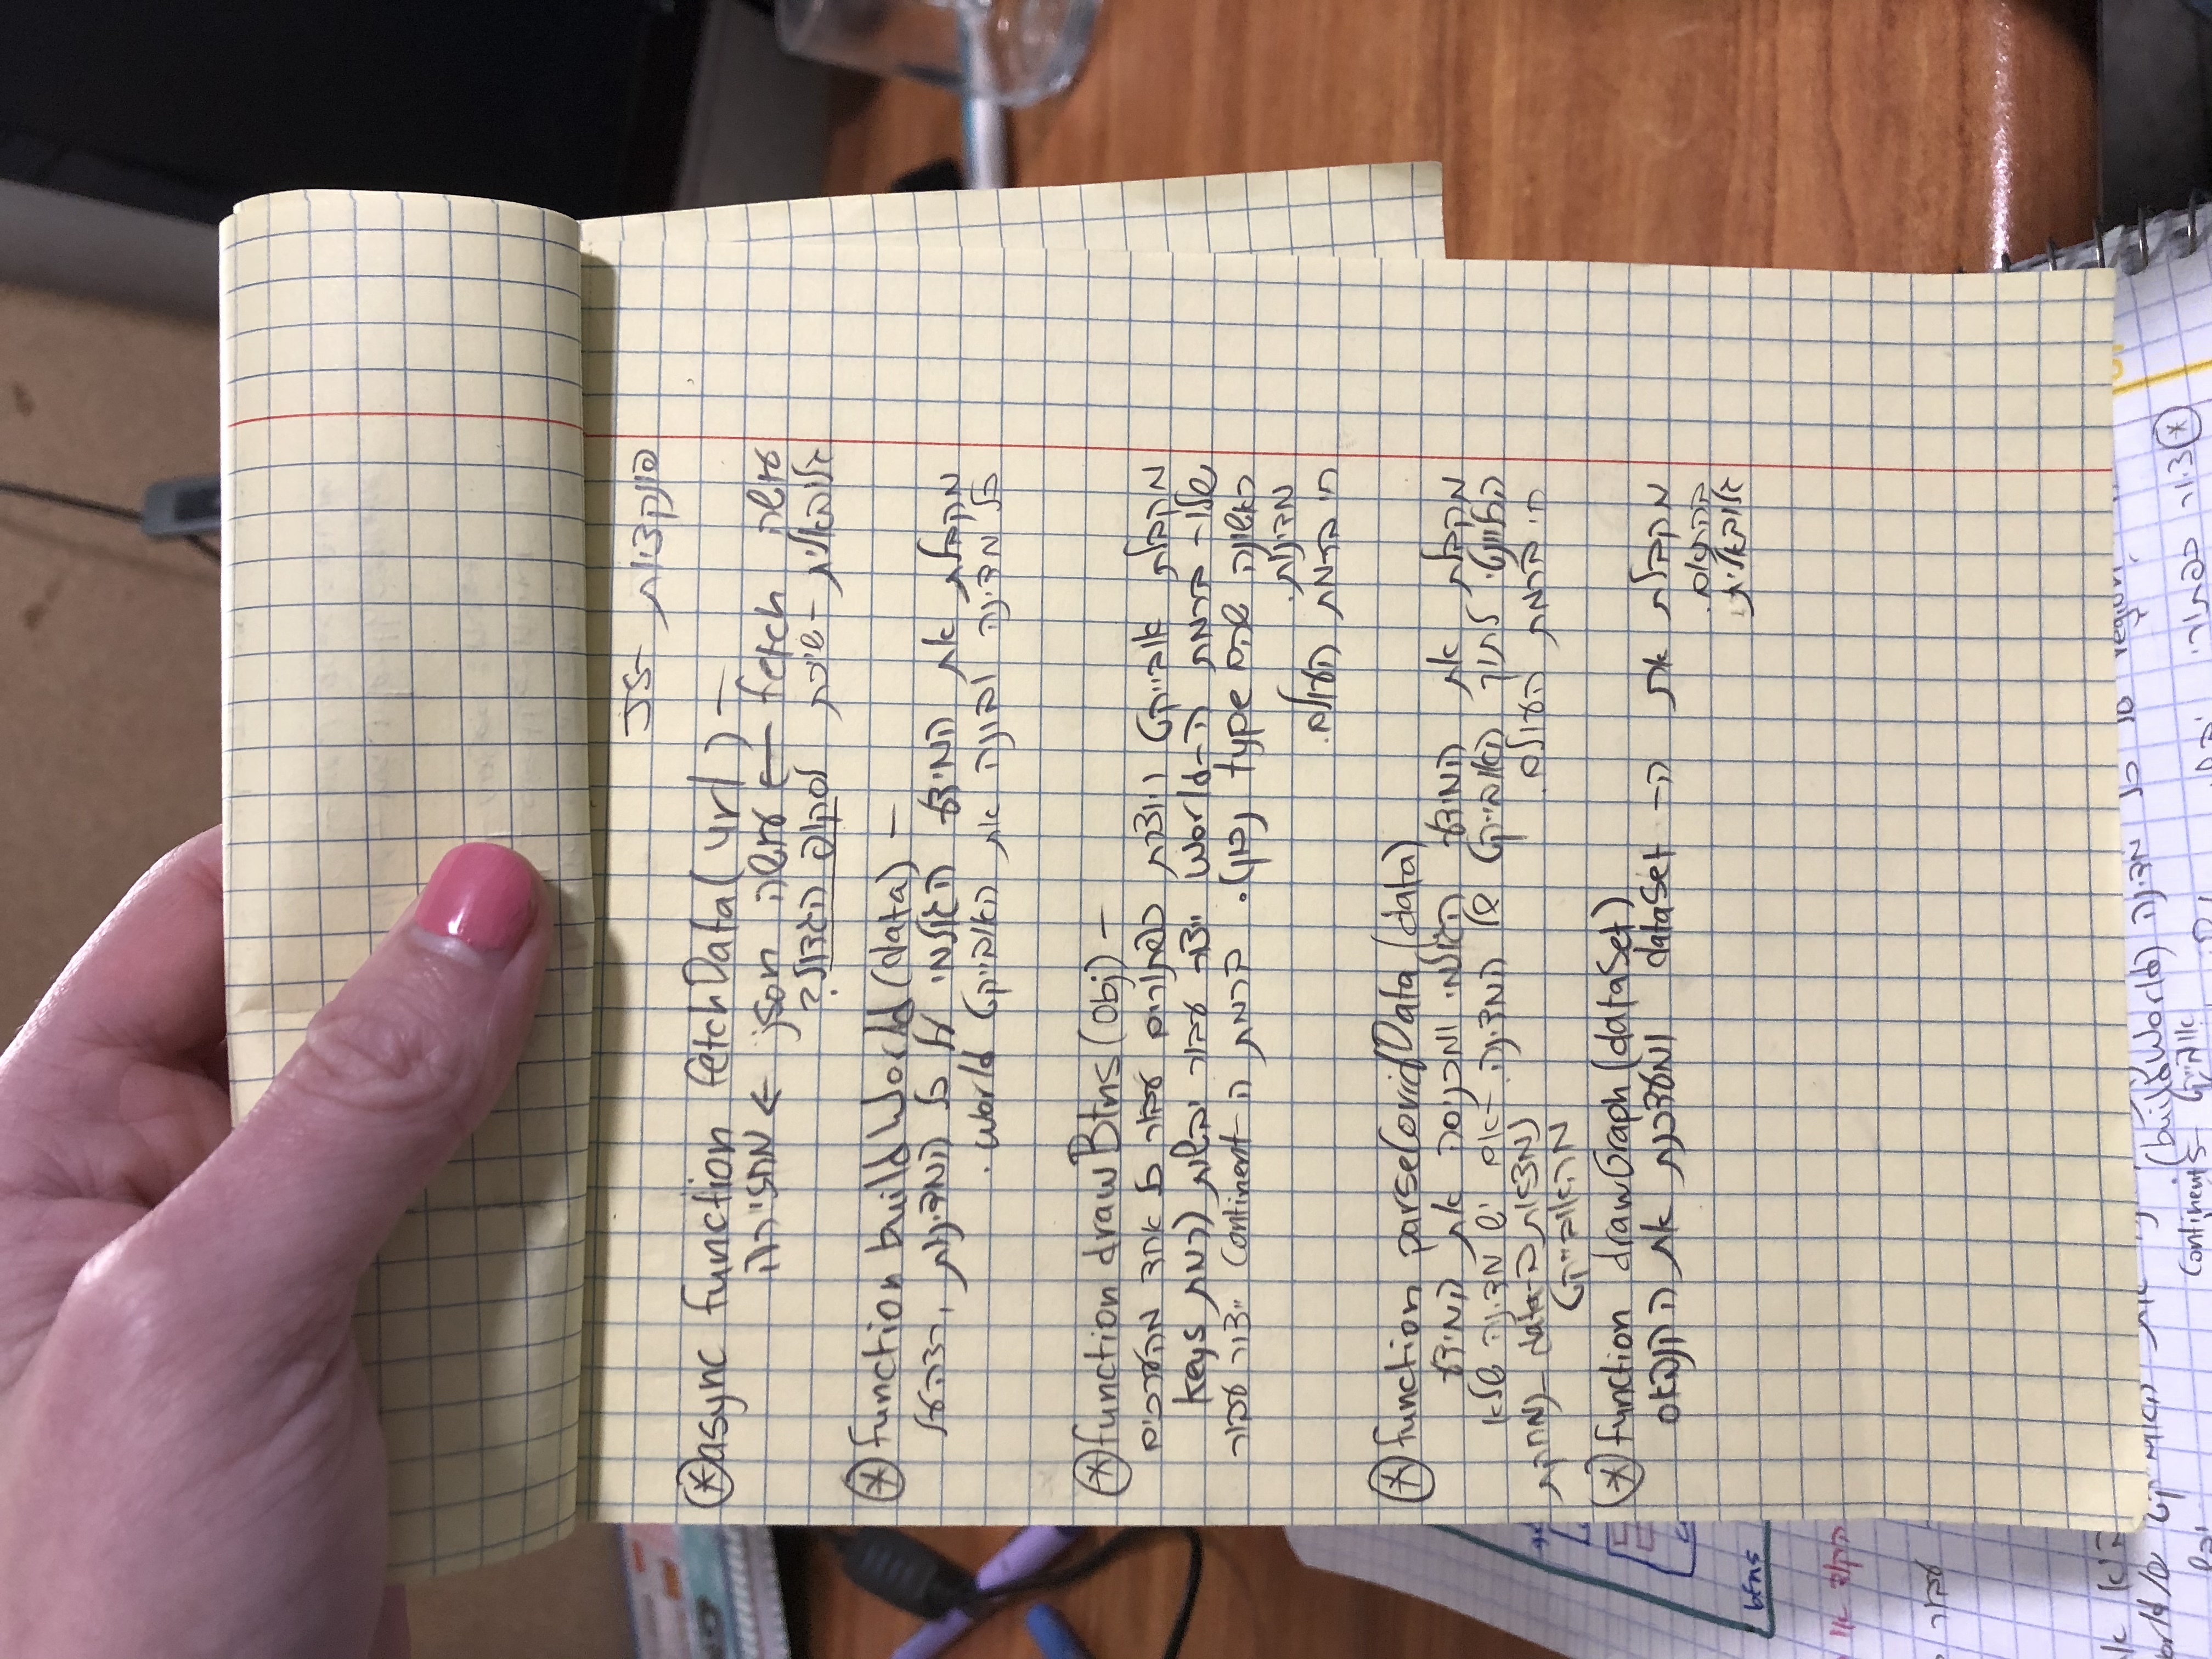 פונקציות JS-
* async function fetchData(url) -
עושה fetch ← עושה json ← מחזירה
גלובאלית - שיכת לסקופ הגדול?
* function buildWorld(data) -
מקבלת את המידע הגולמי על כל המדינות, רצה על
כל מדינה ובונה את האובייקט world.
* function drawBtns(obj) -
מקבלת אובייקט ויוצרת כפתורים עבור כל אחד מהערכים
שלו- ברמת ה-world ייצור עבור יבשות (רמת keys
ראשונה שהם type נכון). ברמת ה-continent ייצור עבור
מדינות.
חי ברמת העולם.
* function parseCovidData(data)
מקבלת את המידע הגולמי ומכניסה את המידע
הרלוונטי לתוך האובייקט של המדינה. -אם יש מדינה שלא
חי ברמת העולם. נמצאת ב-data- נמחקת
מהאובייקט
* function drawGraph(dataSet)
מקבלת את ה- dataset ומעדכנת את הקנבאס
בהתאם.
גלובאלית.
btns
הקוד או
עבור
כל מדינה region
(buildWorld)
continents- אובייקט
* ציור כפתורי